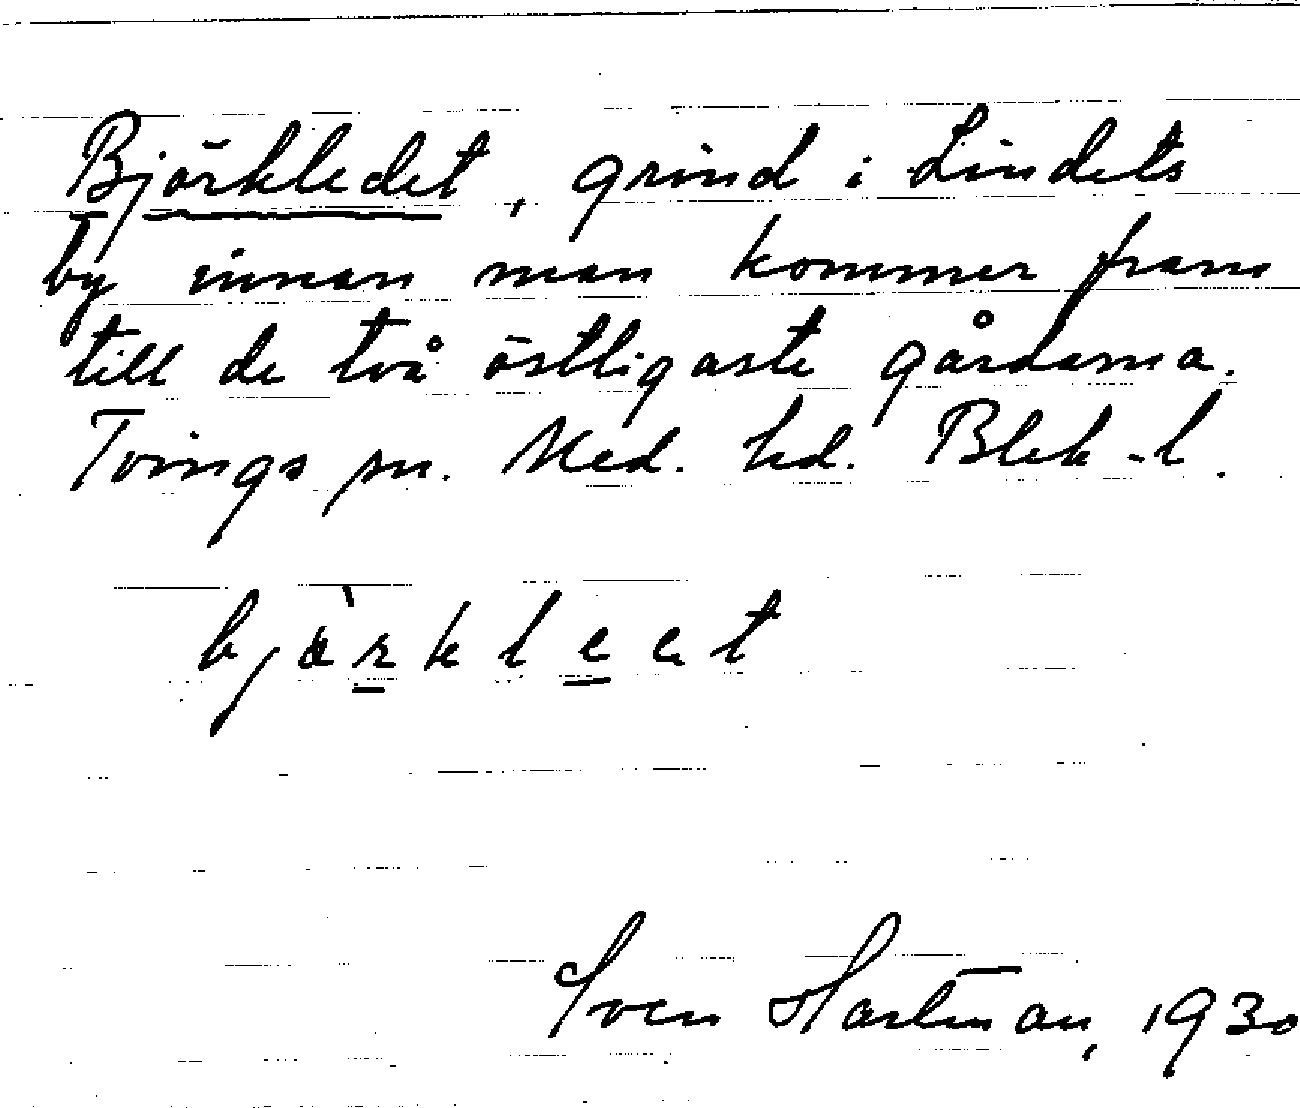 Björkledet, grind i Lindets
by innan man kommer fram
till de två östligaste gårdarna.
Tvings sn. Med. hd. Blek-l.
bjàrkleet
Sven Hartman, 1930